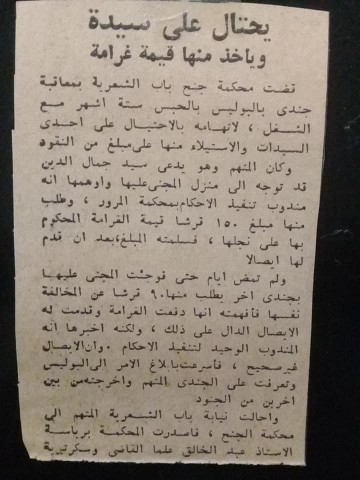 يحتال على سيدة
وياخذ منها قيمة غرامة
قضت محكمة جنح باب الشعرية بمعاقبة
جندى بالبوليس بالحبس ستة اشهر مع
الشغل ، لاتهامه بالاحتيال على احدى
السيدات والاستيلاء منها على مبلغ من النقود
وكان المتهم وهو يدعى سيد جمال الدين
قد توجه الى منزل المجنى عليها واوهمها انه
مندوب تنفيذ الاحكام بمحكمة المرور ، وطلب
منها مبلغ ١٥٠ قرشا قيمة الغرامة المحكوم
بها على نجلها ، فسلمته المبلغ ، بعد ان قدم
لها ايصالا
ولم تمض ايام حتى فوجئت المجنى عليها
بجندى اخر يطلب منها ٩٠ قرشا عن المخالفة
نفسها فأفهمته انها دفعت الغرامة وقدمت له
الايصال الدال على ذلك ، ولكنه اخبرها انه
المندوب الوحيد لتنفيذ الاحكام . وان الايصال
غير صحيح ، فأسرعت بابلاغ الامر الى البوليس
وتعرفت على الجندى المتهم واخرجته من بين
اخرين من الجنود
واحالت نيابة باب الشعرية المتهم الى
محكمة الجنح ، فأصدرت المحكمة برياسة
الاستاذ عبد الخالق علما القاضى وسكرتيرية